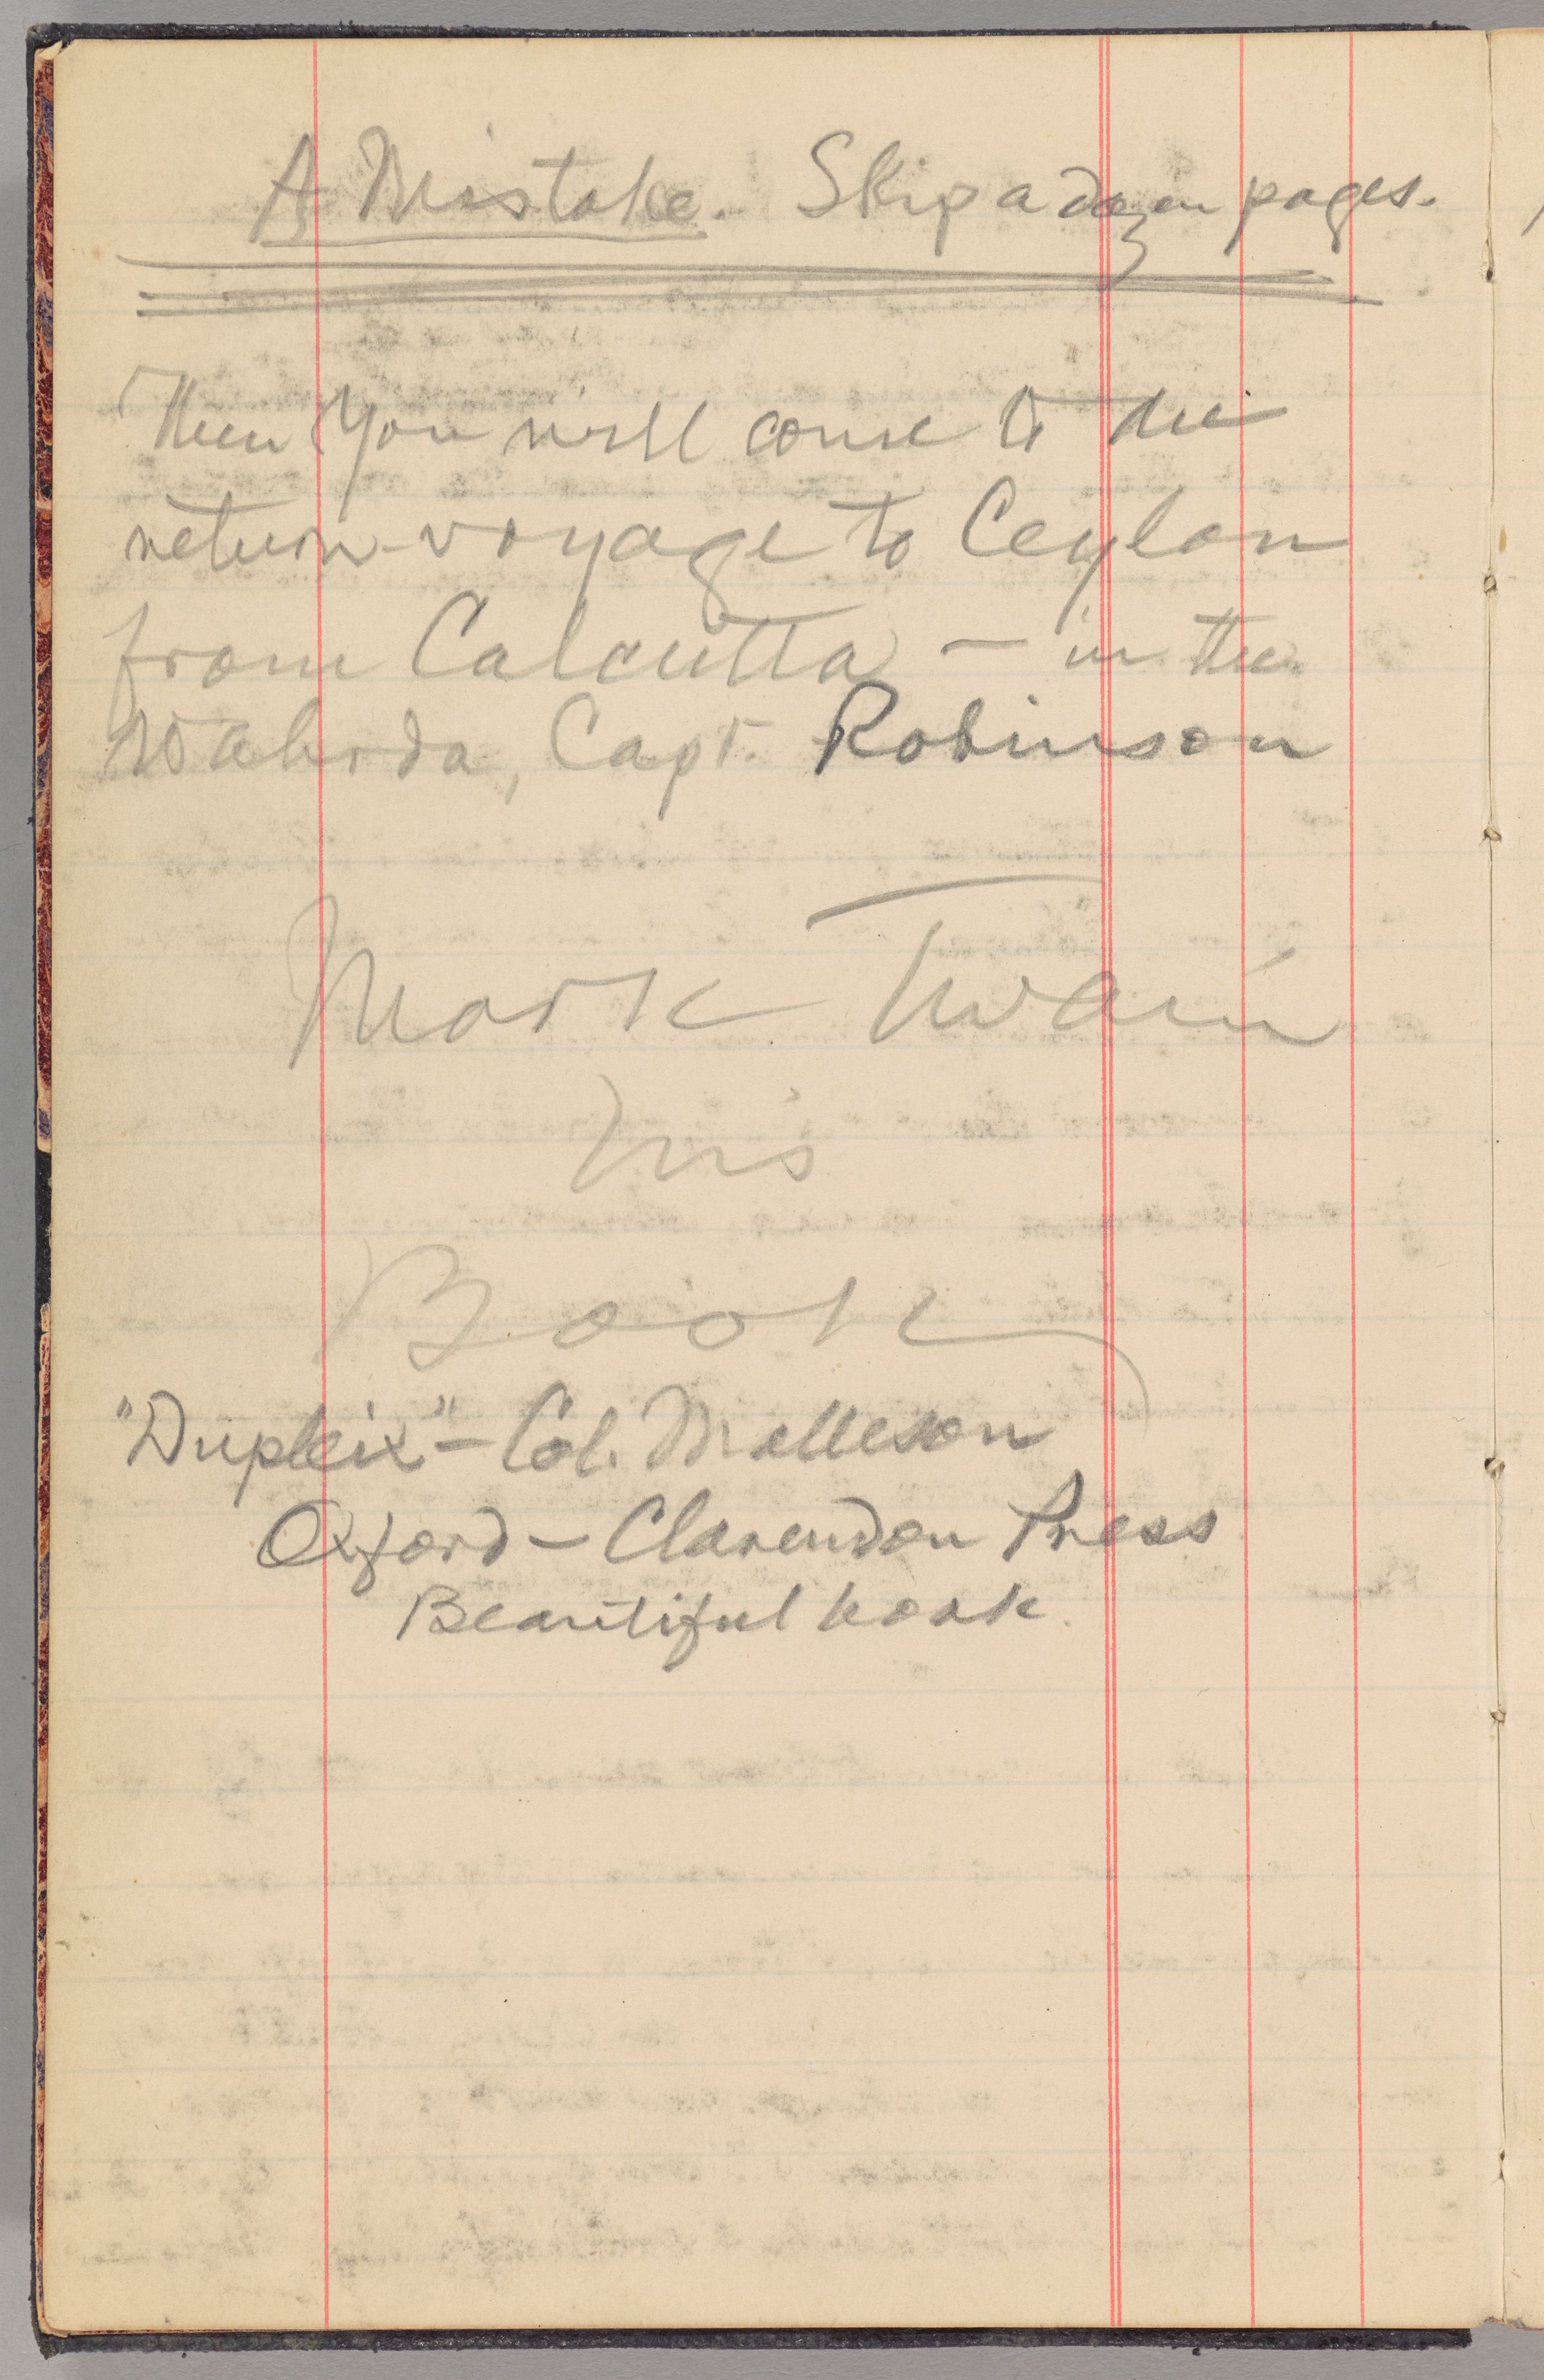 A Mistake. Skip a dozen pages.
Then you will come to the
return-voyage to Ceylon
from Calcutta — in the
Wahrda, Capt. Robinson
Mark Twain
his
Book
"Dupleix" — Col. Malleson
Oxford — Clarendon Press
Beautiful book.